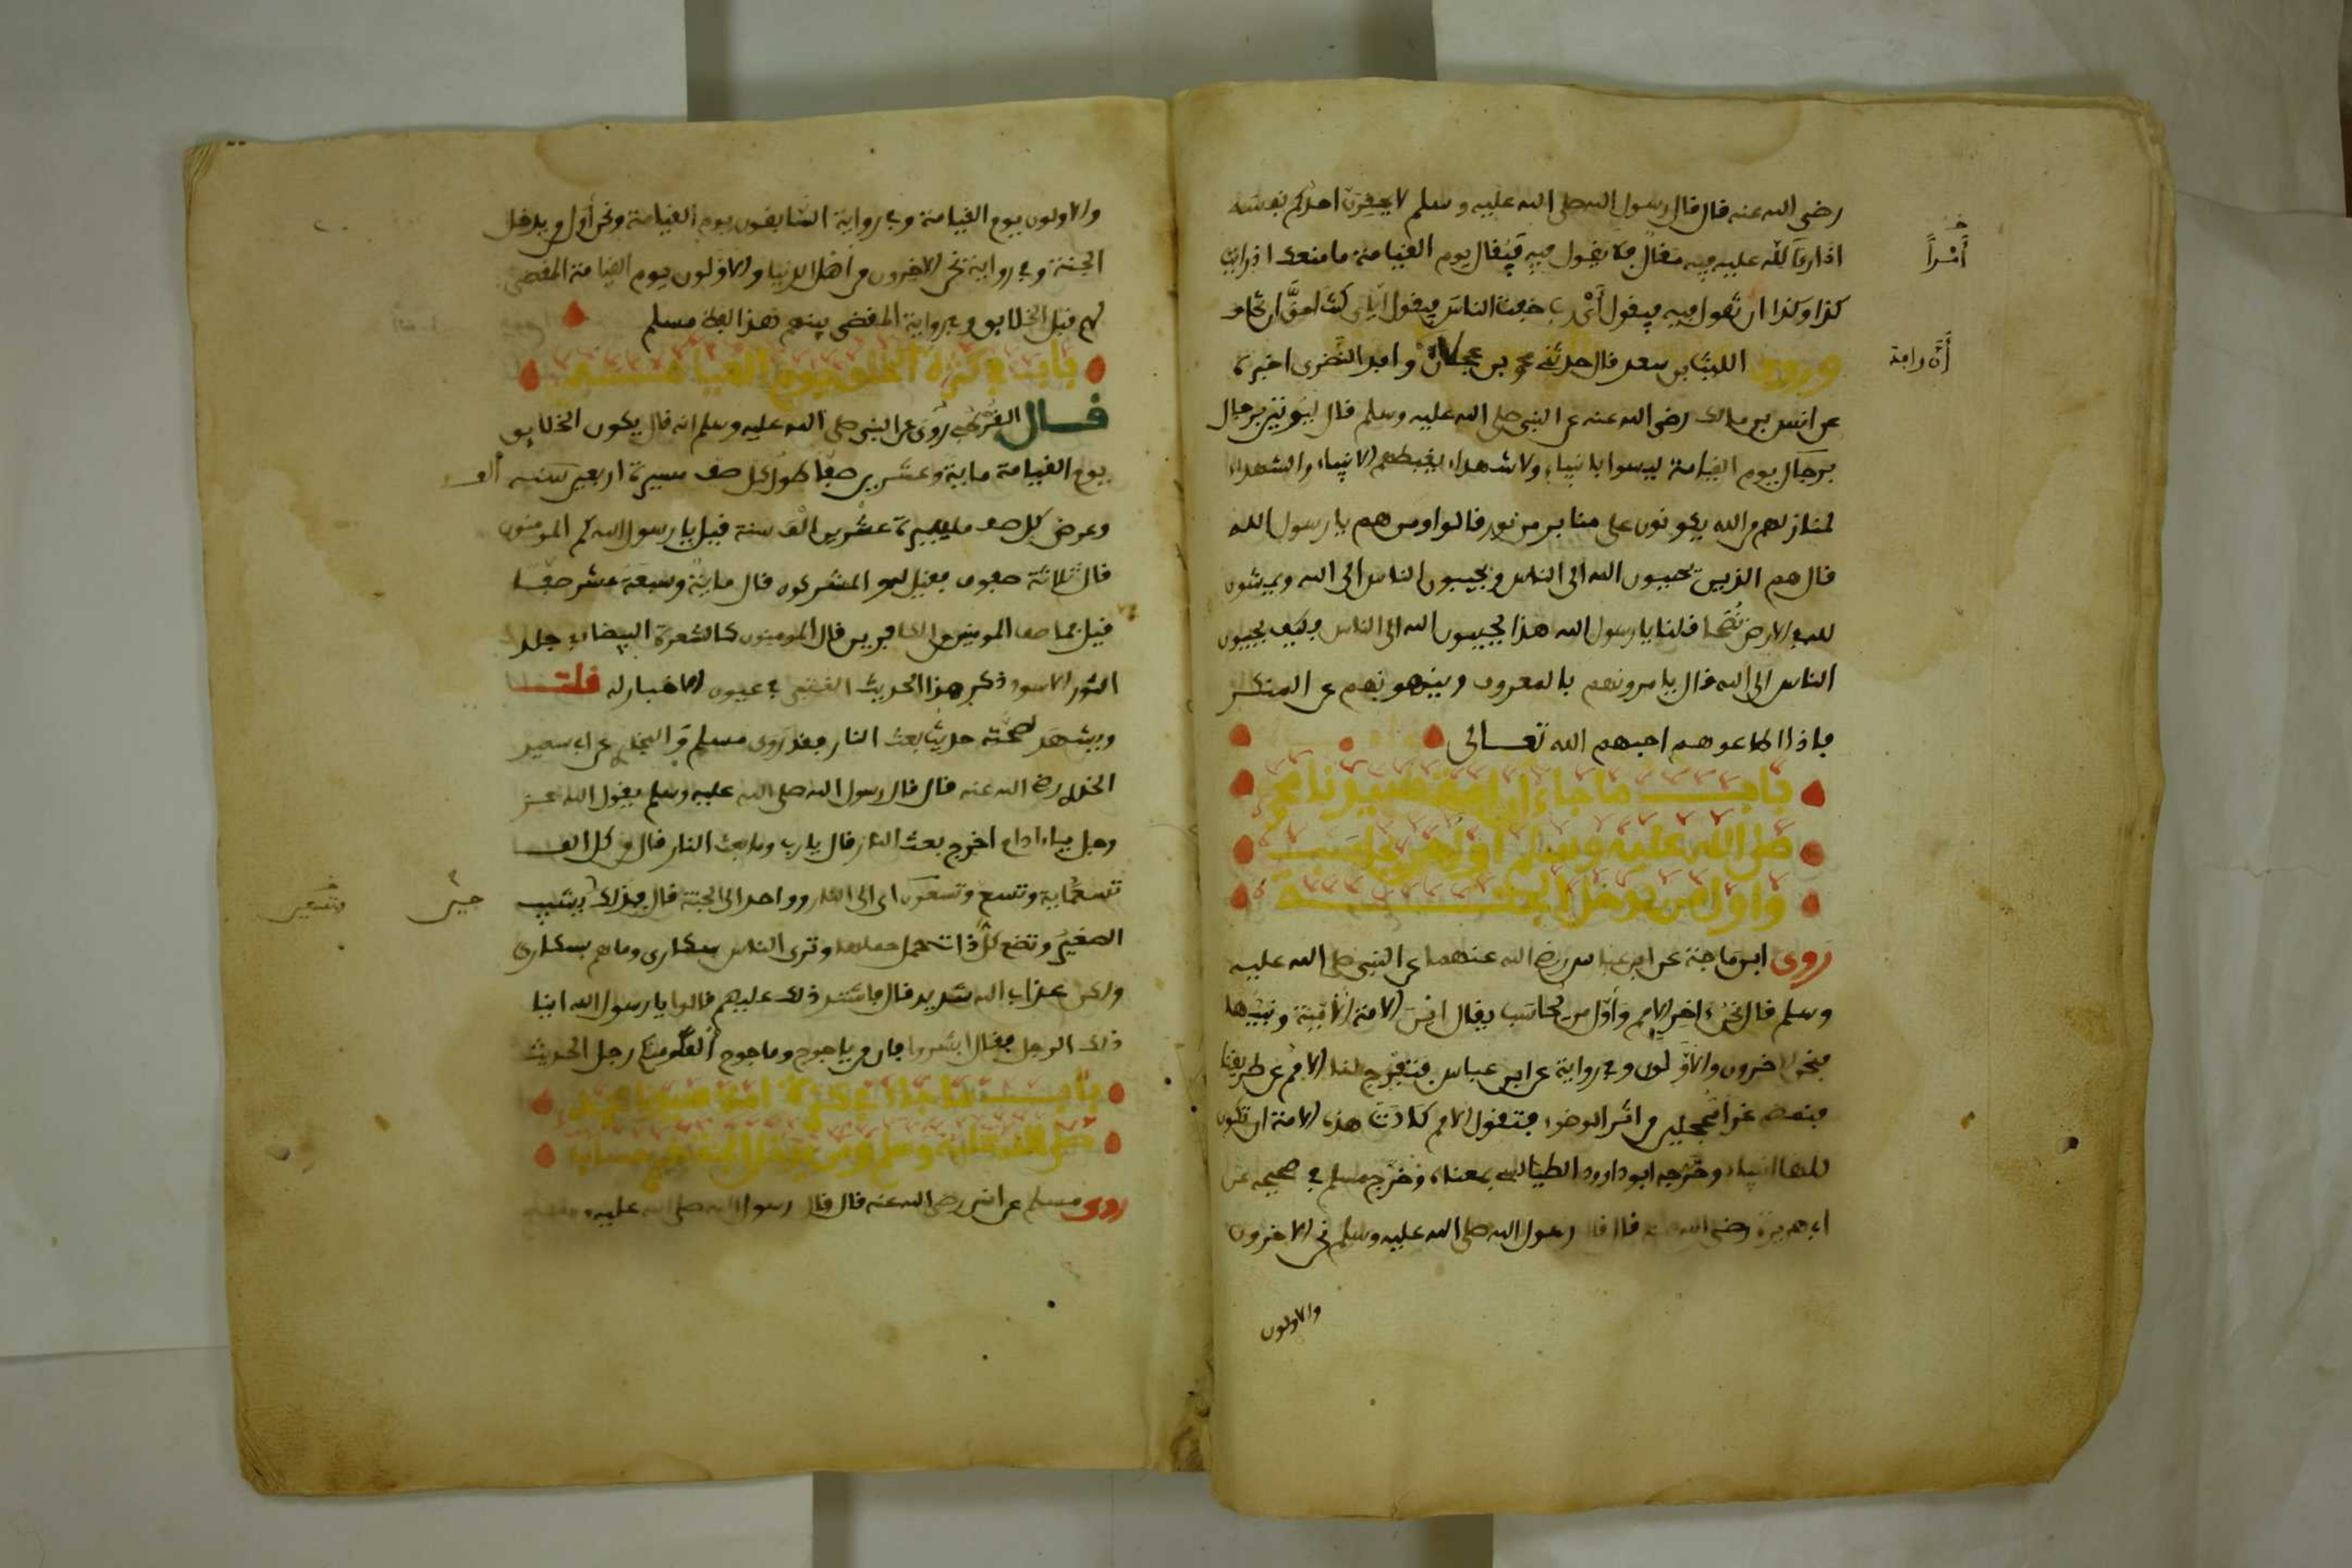 رضي الله عنه قال قال رسول الله صلى الله عليه وسلم لا يحقرن احدكم نفسه
اذا رءا لله عليه فيه مقال فلا يقول فيه فيقال يوم القيامة ما منعك اذ رايت
كذا وكذا ان تقول فيه فيقول أي رب خفت الناس فيقول اياي كنت احق ان تخاف
أمْراً
وروى الليث بن سعد قال حدثني محمد بن عجلان و النضري اخبره
عن انس بن مالك رضي الله عنه عن النبي صلى الله عليه وسلم قال ليوتين برجال
برجال يوم القيامة ليسوا بانبياء ولا شهداء يغبطهم الانبياء والشهداء
لمنازلهم من الله يكونون على منابر من نور قالوا ومن هم يا رسول الله
قال هم الذين يحببون الله الى الناس ويحببون الناس الى الله ويمشون
لله في الارض نُصَّحا قلنا يا رسول الله هذا يحببون الله الى الناس فكيف يحببون
الناس الى الله قال يامرونهم بالمعروف وينهونهم عن المنكر
فاذا اطاعوهم احبهم الله تعالى
باب ما جاء ان امة سيدنا محمد
صلى الله عليه وسلم اول من يحاسب
واول من يدخل الجنة
روى ابن ماجة عن ابن عباس رضي الله عنهما عن النبي صلى الله عليه
وسلم قال نحن ءاخر الامم وأول من يحاسب يقال اين الامة الأمية ونبيها
فنحن الاخرون والأولون وفي رواية عن ابن عباس فتفرج لنا الامم عن طريقنا
فنمضي غرا محجلين من اثر الوضوء فتقول الامم كادت هذه الامة ان تكون
كلها انبياء وخرجه ابو داوود الطيالسي بمعناه وخرج مسلم في صحيحه عن
ابي هريرة رضي الله عنه قال قال رسول الله صلى الله عليه وسلم نحن الاخرون
والاولون
والاولون يوم القيامة وفي رواية السابقون يوم القيامة ونحن أول من يدخل
الجنة وفي رواية نحن الاخرون من اهل الدنيا والاولون يوم القيامة المقضي
لهم قبل الخلايق وفي رواية المقضي بينهم هذا لفظ مسلم
باب في كثرة الخلق يوم القيامة
قال القرطبي روي عن النبي صلى الله عليه وسلم انه قال يكون الخلايق
يوم القيامة ماية وعشرين صفا طول كل صف مسيرة اربعين سنة ألف
وعرض كل صف مسيرة عشرين الف سنة قيل يا رسول الله كم المومنون
قال ثلاثة صفوف فقيل له والمشركون قال ماية وسبعة عشر صفا
قيل فما صفة المومنين والكافرين قال المومنون كالشعرة البيضاء في جلد
الثور الاسود ذكر هذا الحديث القتبي في عيون الاخبار له قلت
ويشهد لصحته حديث بعث النار فقد روى مسلم والبخاري عن ابي سعيد
الخدري رضي الله عنه قال قال رسول الله صلى الله عليه وسلم يقول الله عز
وجل ياءادام اخرج بعث النار قال يا رب وما بعث النار قال من كل الف
تسعماية وتسع وتسعون اي الى النار وواحد الى الجنة قال فذلك يشيب
حين
الصغير وتضع كل ذات حمل حملها وترى الناس سكارى وما هم بسكارى
ولكن عذاب الله شديد قال فاشتد ذلك عليهم قالوا يا رسول الله اينا
ذلك الرجل فقال ابشروا فان من ياجوج وماجوج ألفا ومنكم رجل الحديث
باب ما جاء في كثرة امة سيدنا محمد
صلى الله عليه وسلم ومن يدخل الجنة بغير حساب
روى مسلم عن انس رضي الله عنه قال قال رسول الله صلى الله عليه وسلم